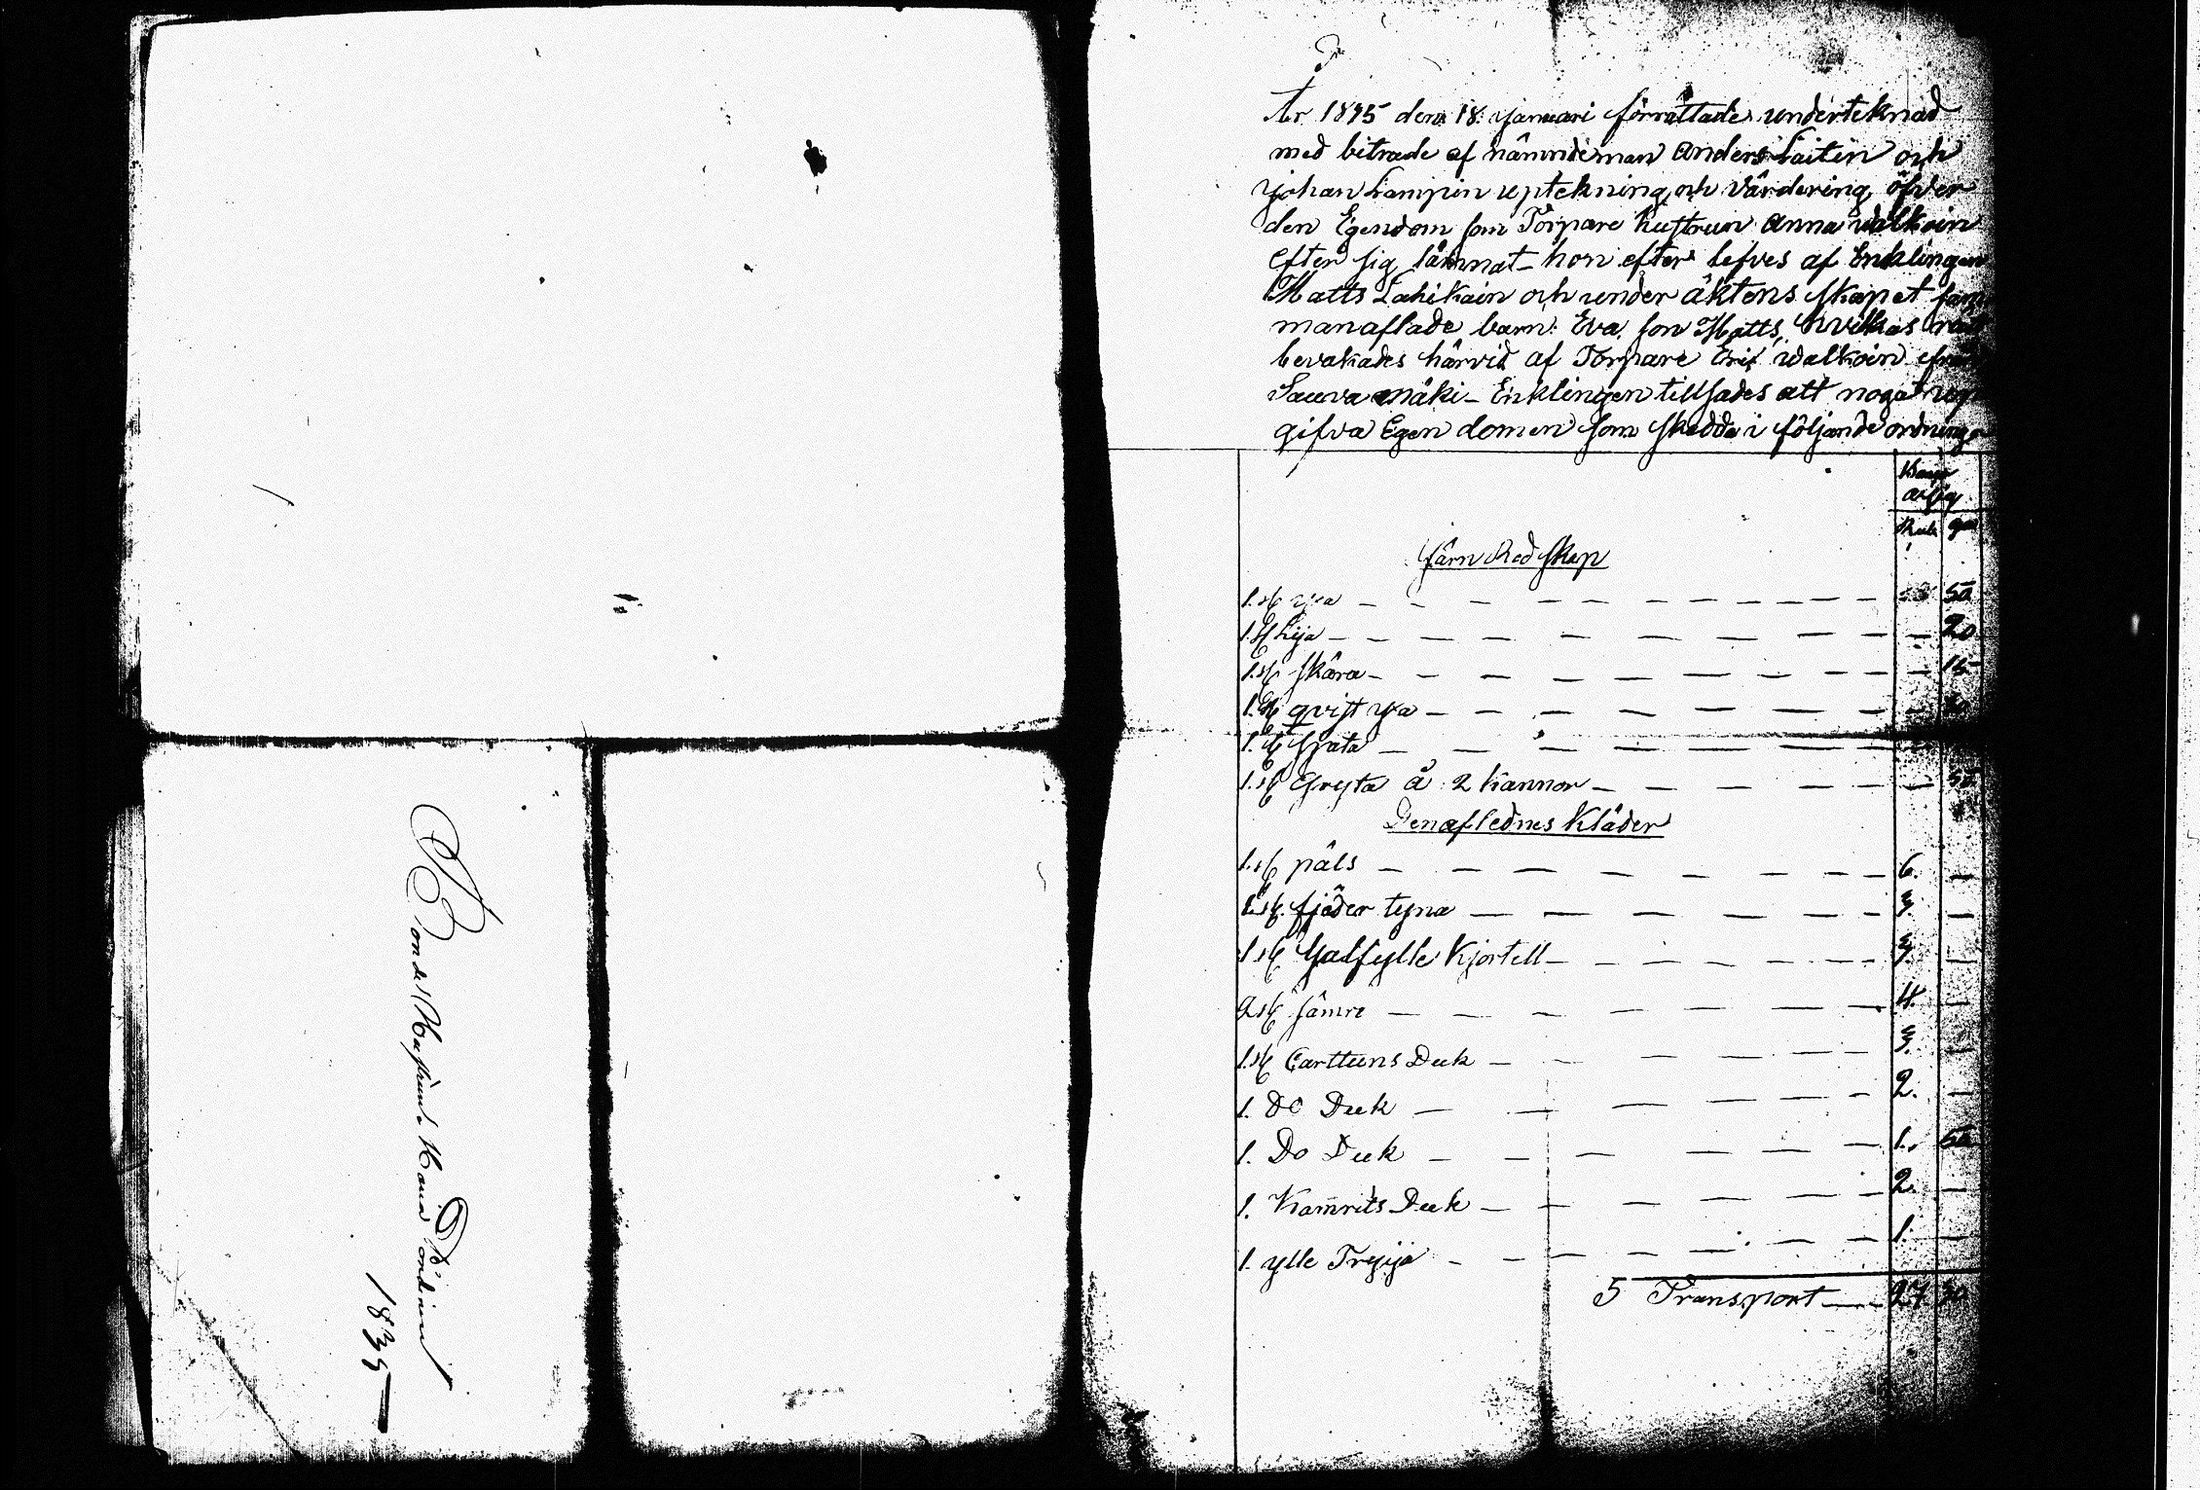 Bondes
1835
År 1835 den 18. januari förrättade underteknad
med biträde af nämndeman Anders Laitin och
johan Lampin uptekning och Värdering öfver
den Egendom som Torpare hustrun Anna walkoin
efter sig lämnat - hon efter lefves af Enklingen
Matts Lahikain och under äktens skapet sam
manaflade barn: Eva, son Matts, hvilkas rätt
bevakades härvid af Torpare Erik walkoin ifrån
Sauva mäki - Enklingen tillsades att noga upp
gifva Egen domen som skedde i följande ordning
Järn Red skap
1. st yxa — — — 50
1. st Lija — — — 20
1. st skära — — — 15
1. st qvist yxa — — —
1. st spata — — —
1. st Gryta å 2 kannor — — — 50
Den aflednes Kläder
1. st päls — — — 6. —
1. st fjäder tyna — — — 3. —
1. st halfylle kjortell — — — 3. —
2 st — — — 4. —
1. st Carttuns Duk — — — 3. —
1. Do Duk — — — 2. —
1. Do Duk — — — 1. 50
1. Kamrits Duk — — — 2. —
1. ylle Tröyja — — — 1. —
Transport — 27